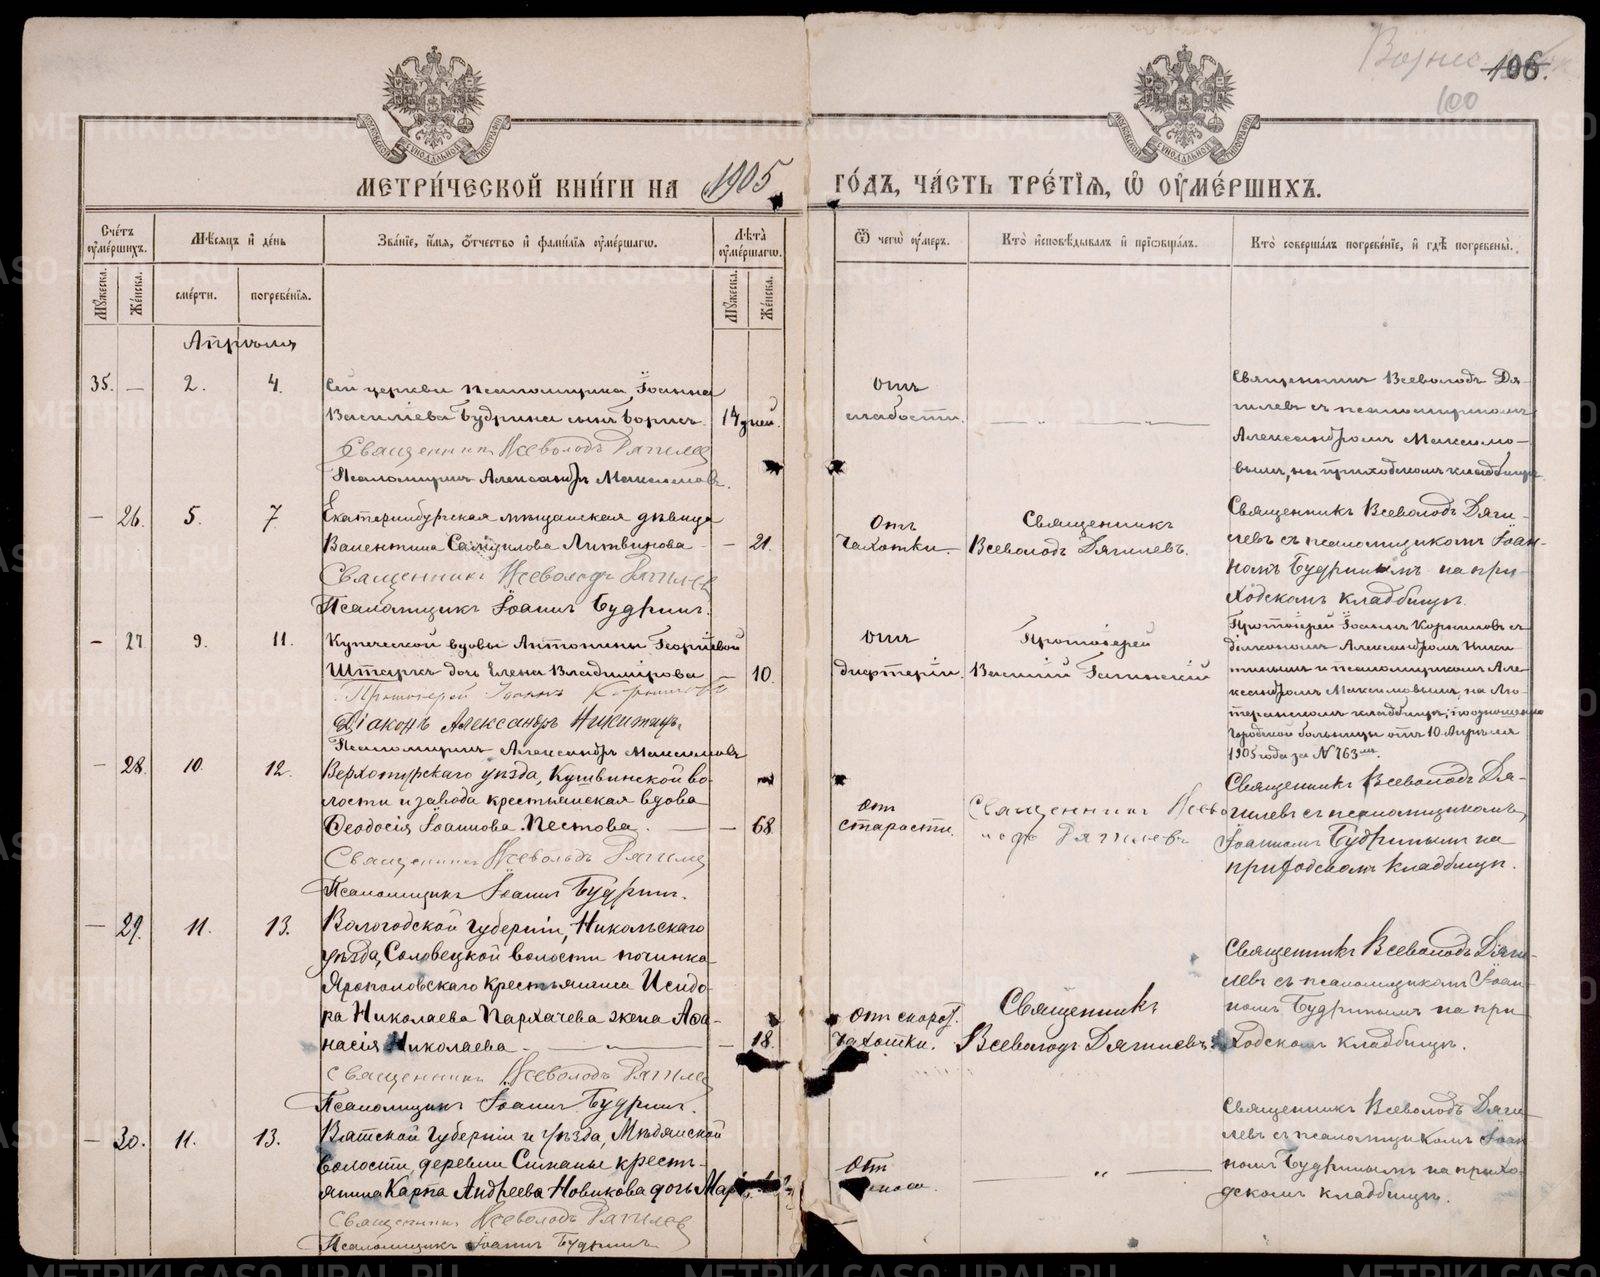 Вознес
106.
100
МЕТРИ́ЧЕСКОЙ КНИ́ГИ НА 1905 ГО́ДЪ, ЧА́СТЬ ТРЕ́ТІѦ, Ѡ҆ ОУ҆МЕ́РШИХЪ.
Сче́тъ оу҆ме́ршихъ.
Мѣ́сяцъ и҆ де́нь
Зва́нїе, и҆́мя, ѻ҆́тчество и҆ фами́лїя оу҆ме́ршагѡ.
Лѣ́та оу҆ме́ршагѡ.
Ѿ чегѡ̀ оу҆́меръ.
Кто̀ и҆сповѣ́дывалъ и҆ прїѡбща́лъ.
Кто̀ соверша́лъ погребе́нїе, и҆ гдѣ̀ погребены̀.
Мꙋ́жеска.
Же́нска.
сме́рти.
погребе́нїя.
Мꙋ́жеска.
Же́нска.
Апрѣля
35. — 2. 4.
Сей церкви псаломщика Іоанна
Василіева Будрина сынъ Борисъ 14 дней.
Священникъ Всеволодъ Дягилев
Псаломщикъ Александръ Максимовъ.
отъ
слабости.
— „ —
Священникъ Всеволодъ Дя-
гилевъ съ псаломщикомъ
Александромъ Максимо-
вымъ, на приходскомъ кладбищѣ
— 26. 5. 7
Екатеринбургская мѣщанская дѣвица
Валентина Самуилова Литвинова — 21.
Священникъ Всеволодъ Дягилев
Псаломщикъ Іоаннъ Будринъ.
Отъ
чахотки.
Священникъ
Всеволодъ Дягилевъ.
Священникъ Всеволодъ Дяги-
левъ съ псаломщикомъ Іоан-
номъ Будринымъ на при-
ходскомъ кладбищѣ.
— 27 9. 11.
Купеческой вдовы Антонины Георгіевой
Штарке дочь Елена Владимірова — 10.
Протоіерей Іоаннъ Корниловъ
Діаконъ Александръ Никитинъ.
Псаломщикъ Александръ Максимовъ
отъ
дифтеріи.
Протоіерей
Василій Галинскій
Протоіерей Іоаннъ Корниловъ съ
діакономъ Александромъ Ники
тинымъ и псаломщикомъ Але-
ксандромъ Максимовымъ, на Лю-
теранскомъ кладбищѣ, по отношенію
Городской больницы отъ 10 Апрѣля
1905 года за № 763
— 28. 10. 12.
Верхотурскаго уѣзда, Кушвинской во-
лости и завода крестьянская вдова
Ѳеодосія Іоаннова Пестова. — — 68
Священникъ Всеволодъ Дягилев
Псаломщикъ Іоаннъ Будринъ.
отъ
старости.
Священникъ Всево
лодъ Дягилевъ
Священникъ Всеволодъ Дя-
гилевъ съ псаломщикомъ
Іоанномъ Будринымъ на
приходскомъ кладбищѣ.
— 29. 11. 13.
Вологодской губерніи, Никольскаго
уѣзда, Соловецкой волости починка
Ярополовскаго крестьянина Исидо-
ра Николаева Пархачева жена Аѳа-
насія Николаева — — 18.
Священникъ Всеволодъ Дягилев
Псаломщикъ Іоаннъ Будринъ.
Отъ скорот.
чахотки.
Священникъ
Всеволодъ Дягилевъ.
Священникъ Всеволодъ Дяги-
левъ съ псаломщикомъ Іоан-
номъ Будринымъ на при
ходскомъ кладбищѣ.
— 30. 11. 13.
Вятской губерніи и уѣзда, Мѣдянской
волости, деревни кресть-
янина Карпа Андреева Новикова дочь
Священникъ Всеволодъ Дягилев
Псаломщикъ Іоаннъ Будринъ
Отъ
— „ —
Священникъ Всеволодъ Дяги-
левъ съ псаломщикомъ Іоан
номъ Будринымъ на прихо-
дскомъ кладбищѣ.
METRIKI.GASO-URAL.RU